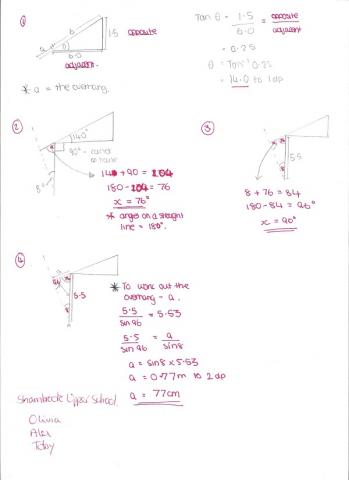 ①
a
b
θ
1.5
opposite
6.0
adjacent
* a = the overhang.
Tan θ = 1.5 = opposite
6.0 adjacent
= 0.25
θ = Tan⁻¹ 0.25
= 14.0 to 1dp
②
140°
90° - corner of house
8°
14 + 90 = 104
180 - 104 = 76
x = 76°
* angles on a straight
line = 180°.
③
5.5
8 + 76 = 84
180 - 84 = 96°
x = 96°
④
a
5.5
* To work out the
overhang - a.
5.5 = 5.53
sin 96
5.5 = a
sin 96 sin 8
a = sin 8 x 5.53
a = 0.77m to 2dp
a = 77cm
Upper School.
Olivia
Alex
Toby